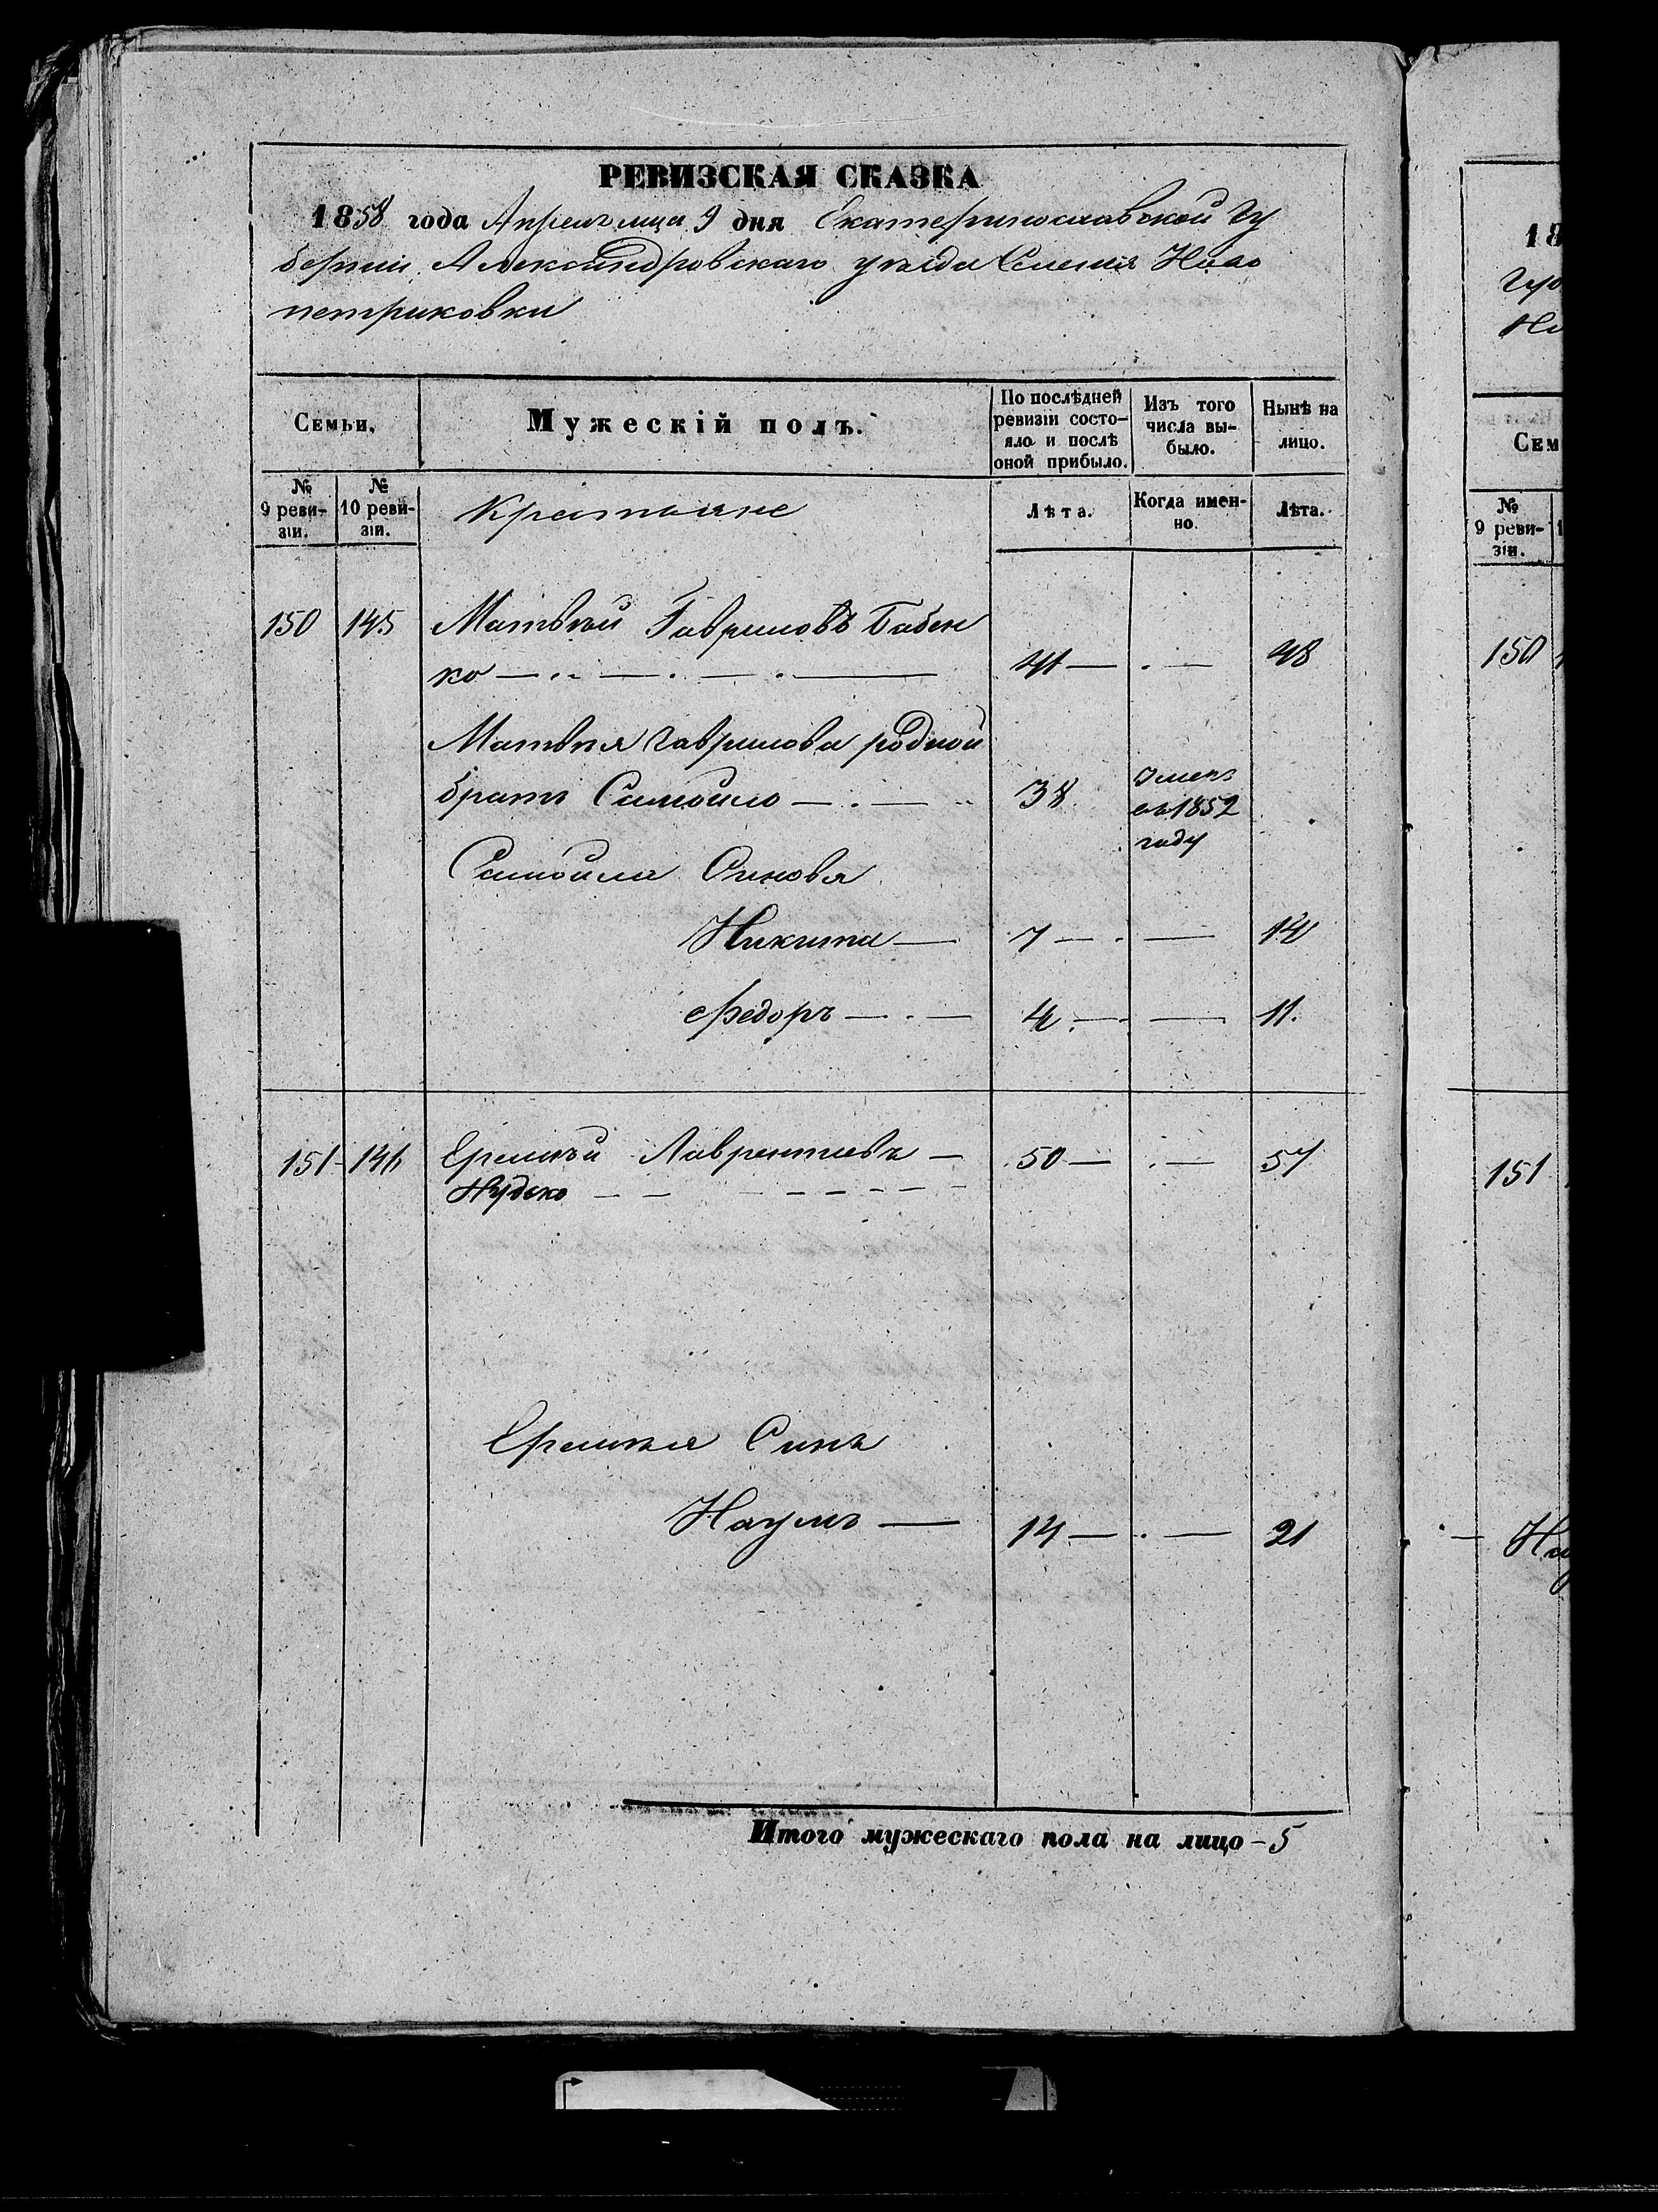 РЕВИЗСКАЯ СКАЗКА
1858 года Апреля мца 9 дня Екатеринославской Гу
берніи Александровскаго уезда Селенія Ново
петриковки
Семьи.
Мужескій полъ.
По послѣдней ревизіи состо-
яло и послѣ оной прибыло.
Изъ того числа вы-
было.
Нынѣ на лицо.
№ 9 реви-
зіи.
№ 10 реви-
зіи.
Крестьяне
Лѣта.
Когда имен-
но.
Лѣта.
150 145 Матвѣй Гавриловъ Бабен
ко — 41 — . — 48
Матвѣя Гаврилова родной
братъ Самойло — . — 38 Умеръ
въ 1852
году
Самойла Синовя
Никита — 7 — . — 14
Федоръ — . — 4 . — . — 11.
151 - 146 Еремѣй Лаврентиевъ — 50 — . — 57
Нудько — —
Еремѣя Синъ
Наумъ — 14 — . — 21
Итого мужескаго пола на лицо - 5
18
Гу
Но
Сем
№
9 реви-
зіи.
150
151